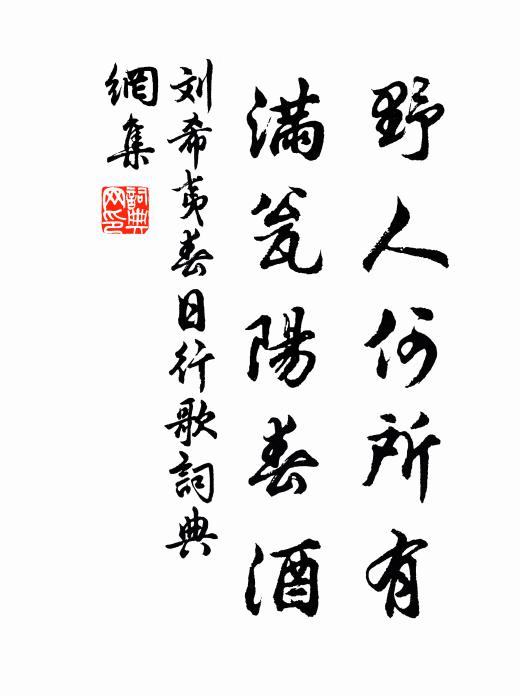 野人何所有
满瓮陽春酒
刘希夷春日行歌詞典
網集
詞典网印